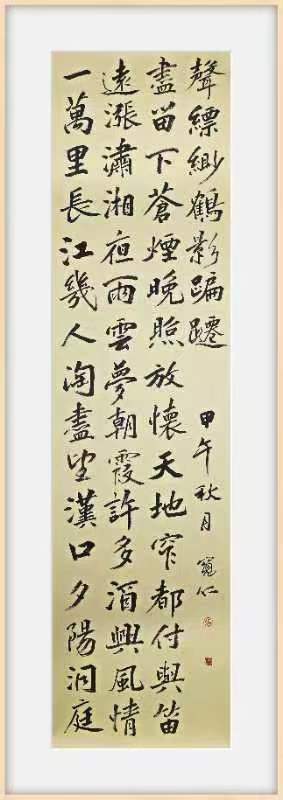 一萬里長江幾人淘盡望漢口夕陽洞庭
遠漲瀟湘夜雨雲夢朝霞許多酒興風情
盡留下蒼煙晚照放懷天地窄都付與笛
聲縹緲鶴影蹁躚
甲午秋月 仁